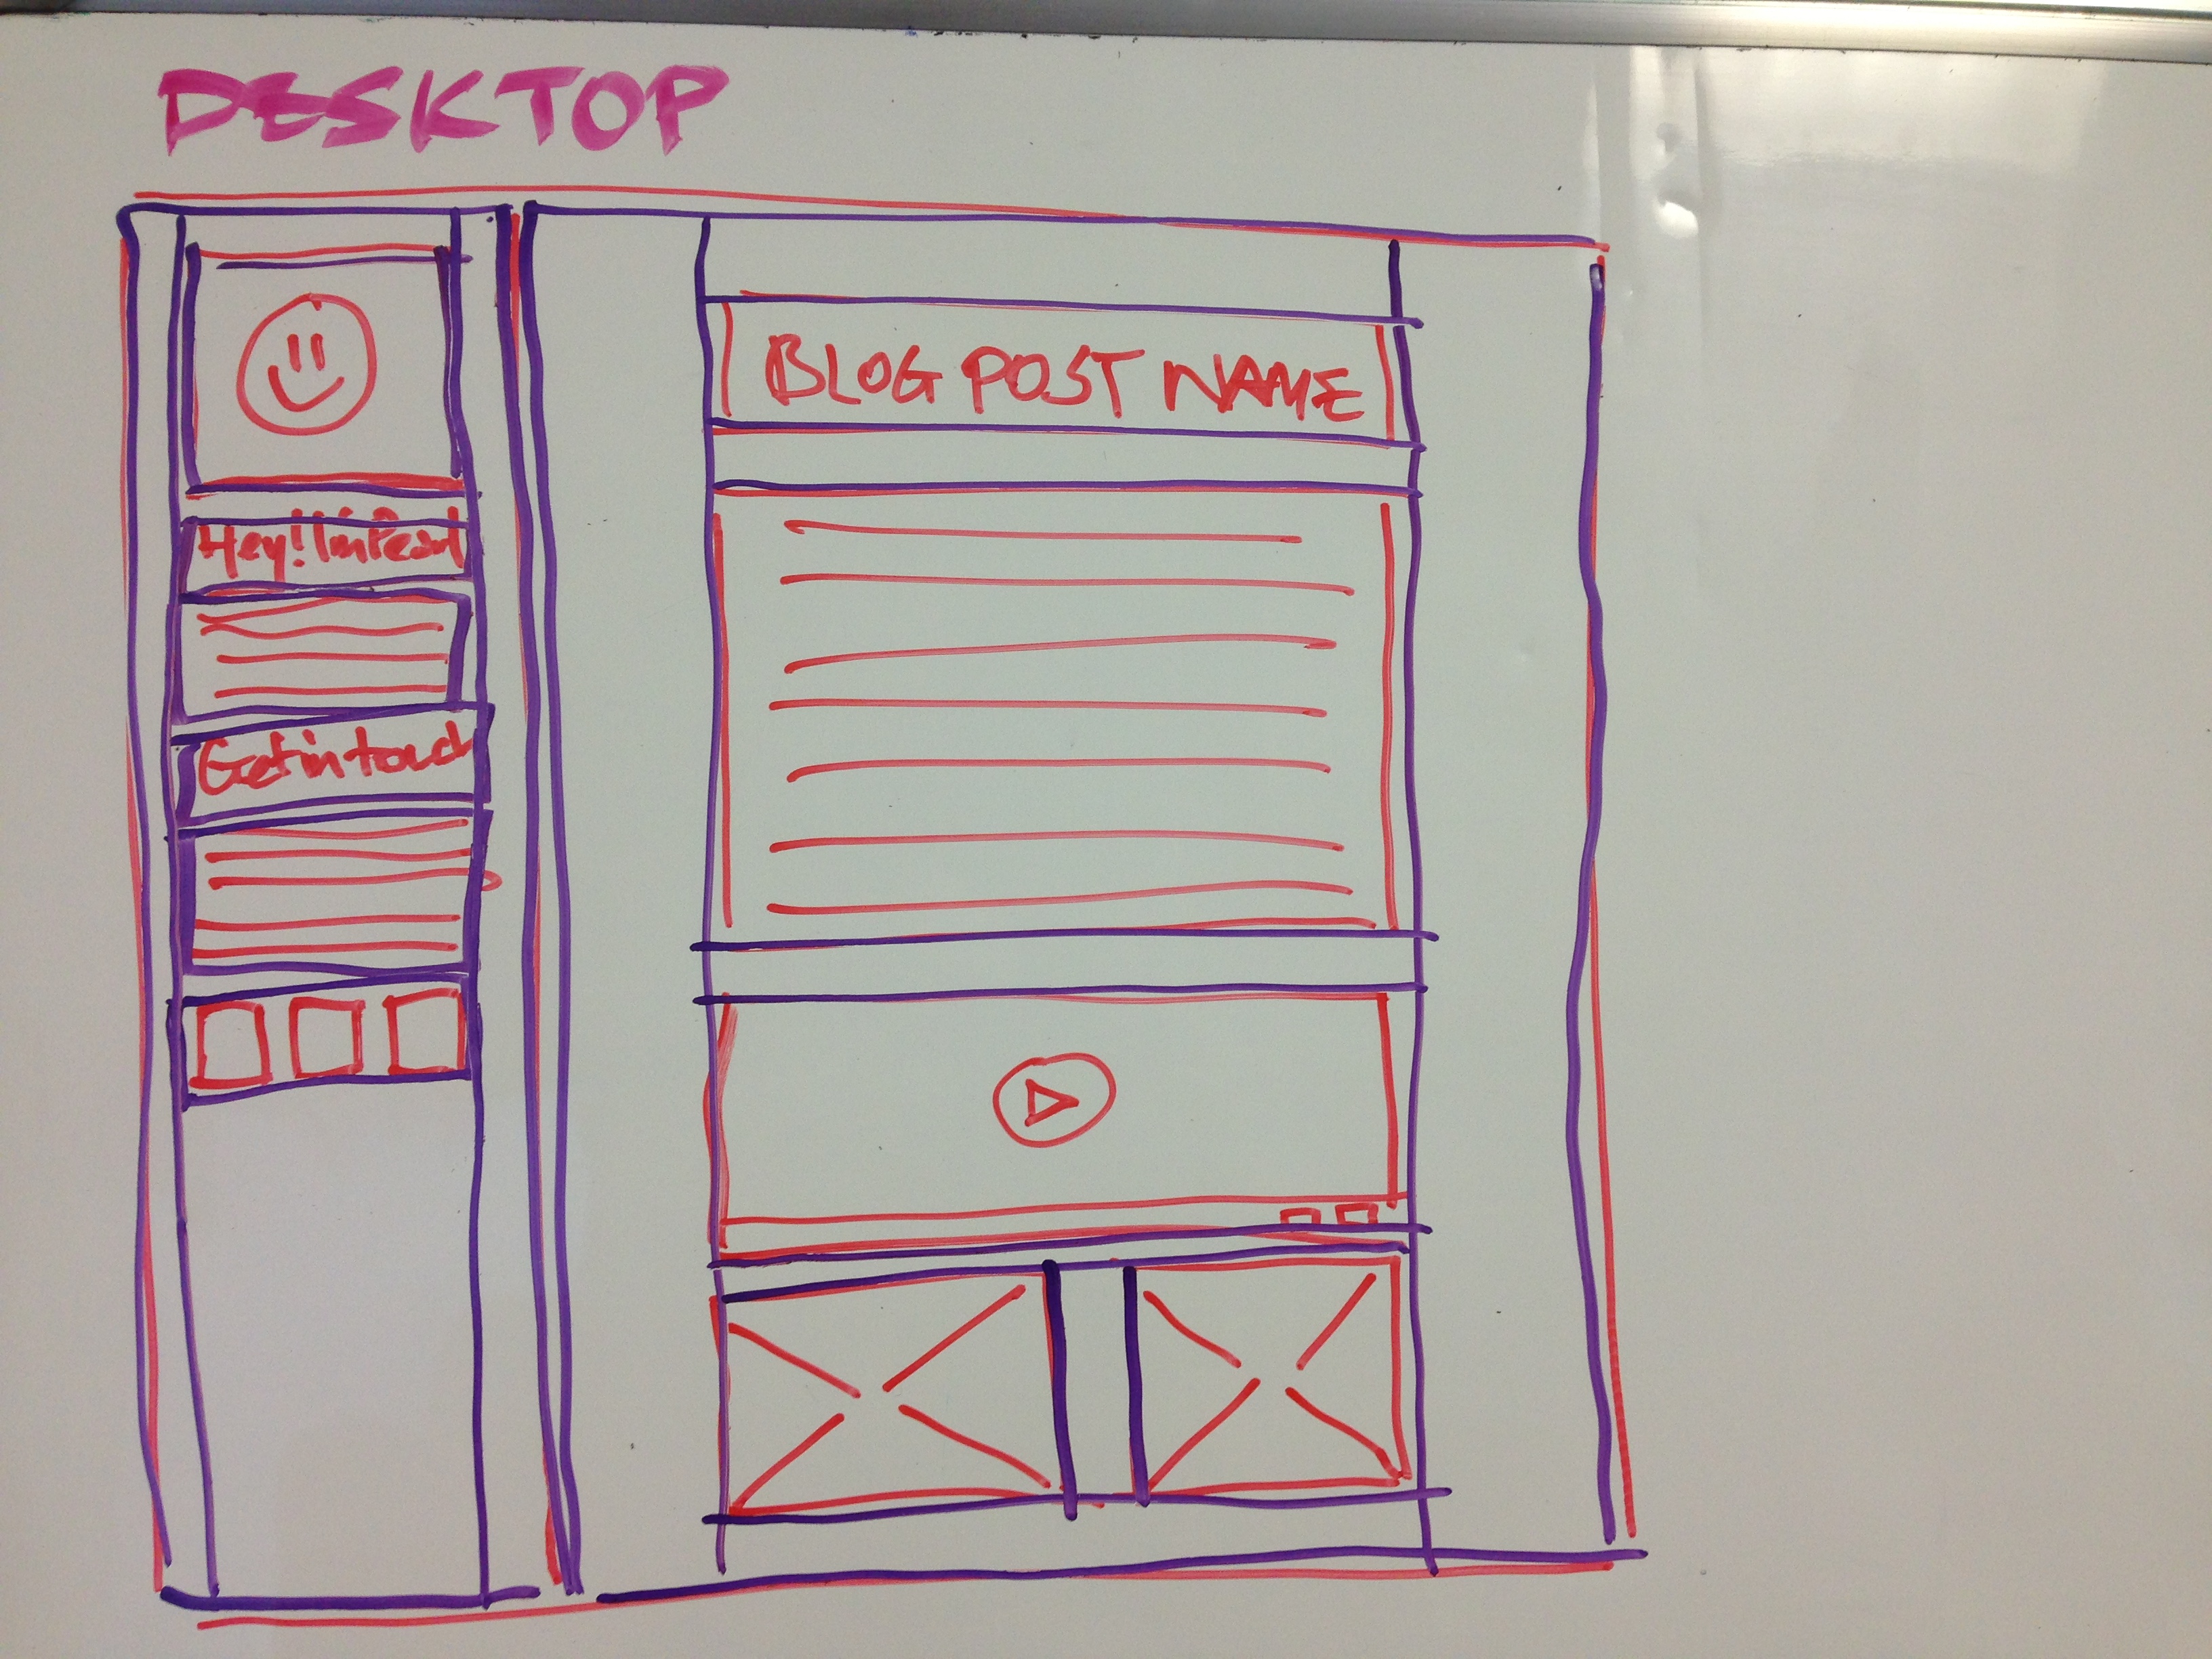 DESKTOP
Hey! I'm Pearl
Get in touch
BLOG POST NAME